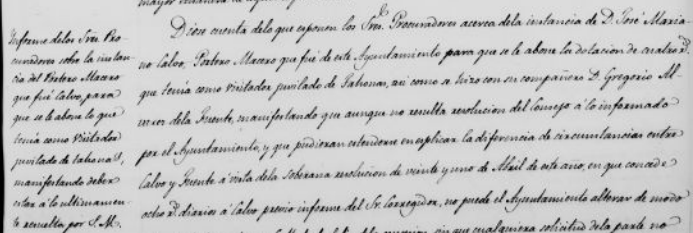 Informe de los Sres. Pro-
curadores sobre la instan-
cia del Portero Macero
que fué Calvo, para
que se le abone lo que
tenia como Visitador
juvilado de tahonas,
manifestando deber
estar á lo ultimamen-
te resuelto por S. M.
Diose cuenta delo que exponen los Sres. Procuradores acerca dela instancia de D. José Maria-
no Calvo, Portero Macero que fué de este Ayuntamiento para que se le abone la dotacion de cuatro rs.
que tenia como visitador juvilado de Tahonas, asi como se hizo con su compañero D. Gregorio Al-
dela Fuente, manifestando que aunque no resulta resolucion del Consejo á lo informado
por el Ayuntamiento, y que pudieran estenderse en esplicar la diferencia de circunstancias entre
Calvo y Fuente á vista dela soberana resolucion de veinte y uno de Abril de este año, en que concede
ocho rs. diarios á Calvo previo informe del Sr. Corregidor, no puede el Ayuntamiento alterar de modo
sin que cualquiera solicitud dela parte no